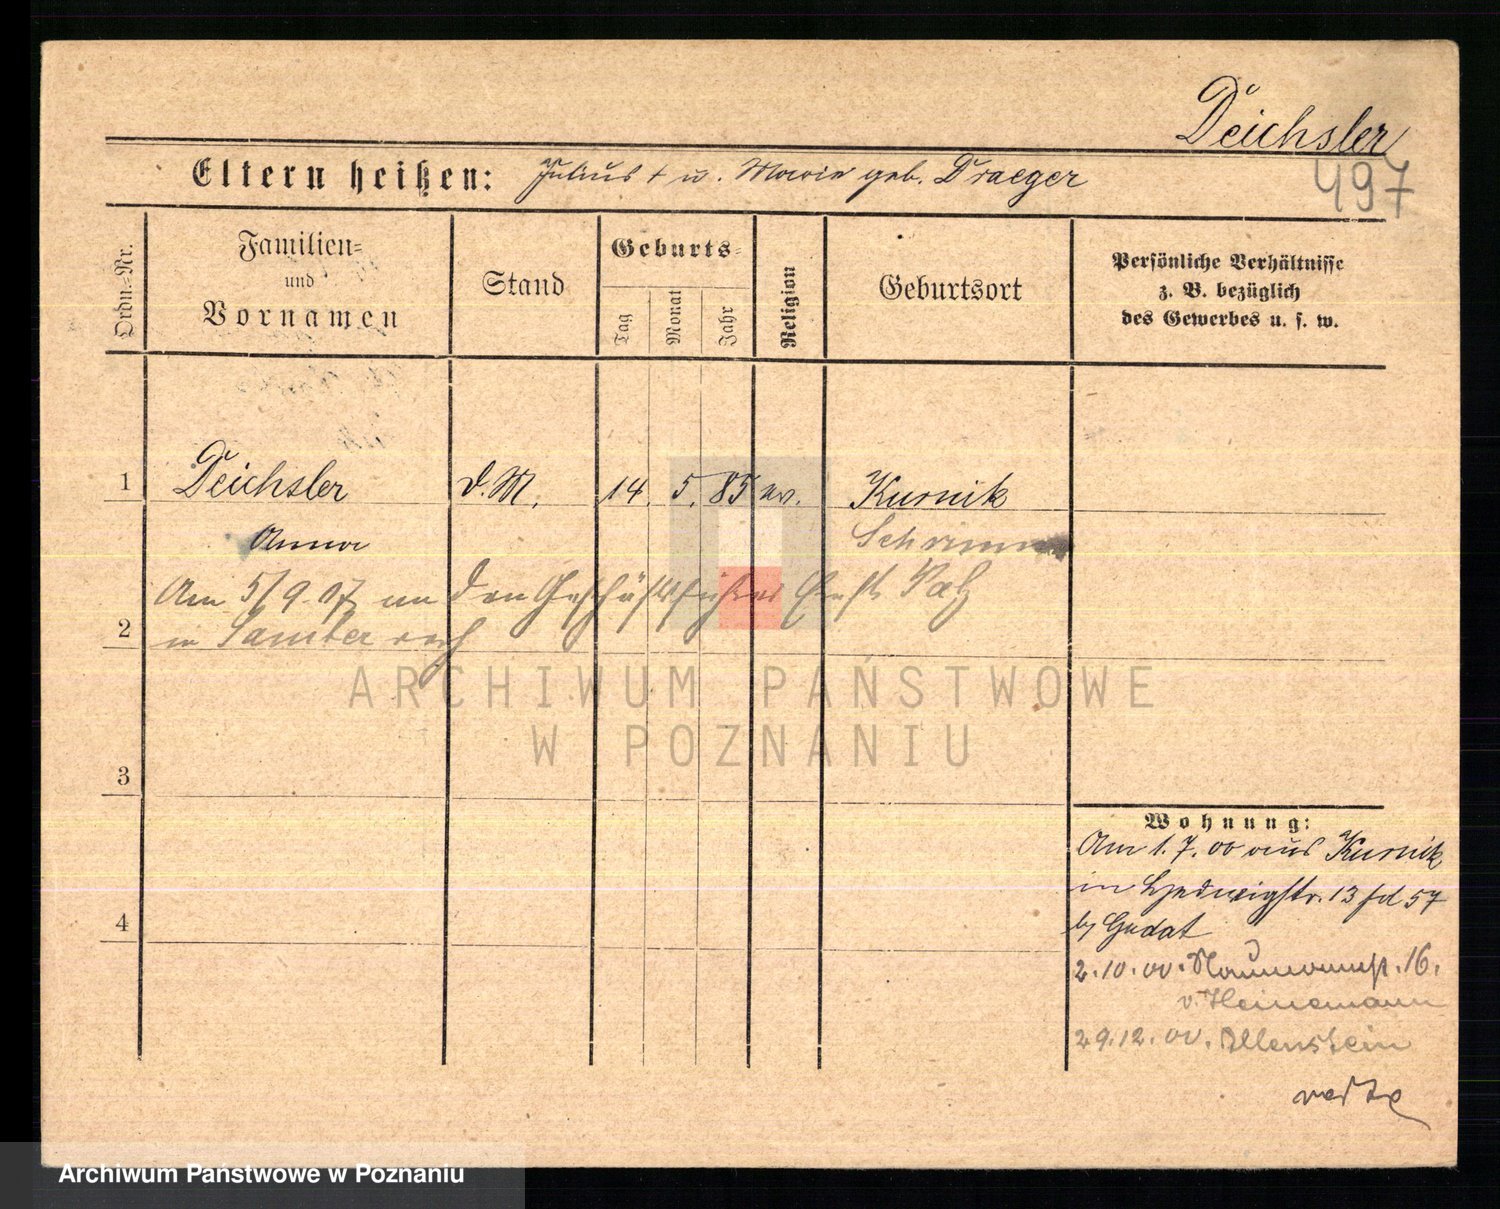 Deichsler
497
Eltern heißen: Julius † u. Marie geb. Draeger
Ordn.-Nr.
Familien-
und
Vornamen
Stand
Geburts-
Tag
Monat
Jahr
Religion
Geburtsort
Persönliche Verhältnisse
z. B. bezüglich
des Gewerbes u. s. w.
1 Deichsler d. M. 14. 5. 85 ev. Kurnik
Anna Schrimm
Am 5/9.07 an den Geschäftsführer
2 in Samter verh
ARCHIWUM PAŃSTWOWE
W POZNANIU
3
4
Wohnung:
Am 1.7.00 aus Kurnik
in Hedwigstr. 13 57
b/ Gudat
2.10.00. Naumannst. 16.
v. Heinemann
29.12.00. Allenstein
Archiwum Państwowe w Poznaniu